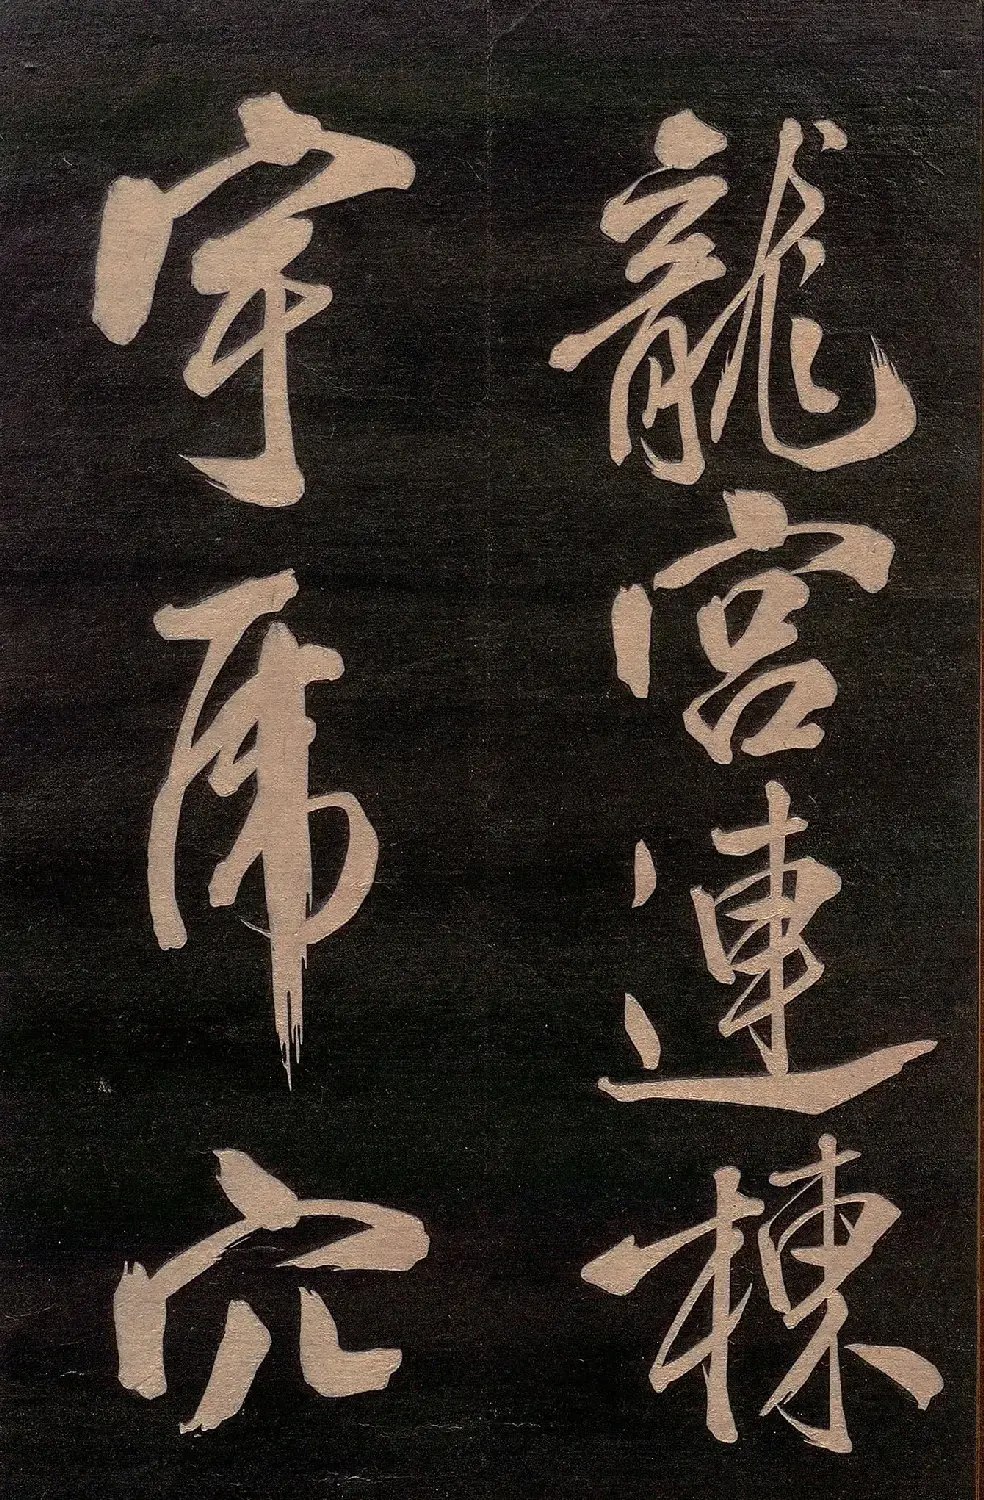 龍宮連棟
宇虎穴